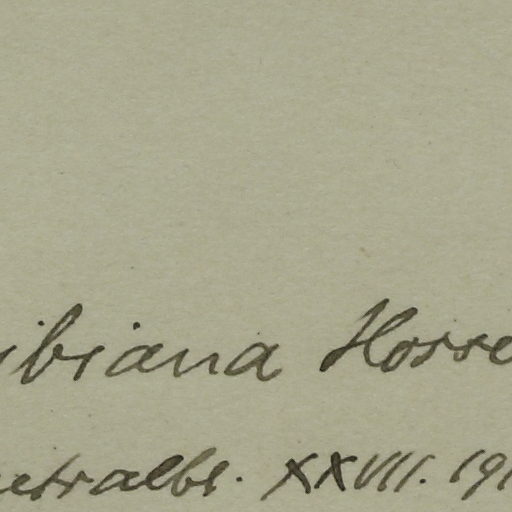 ibiana Hosse
etralbl. XXVIII. 191